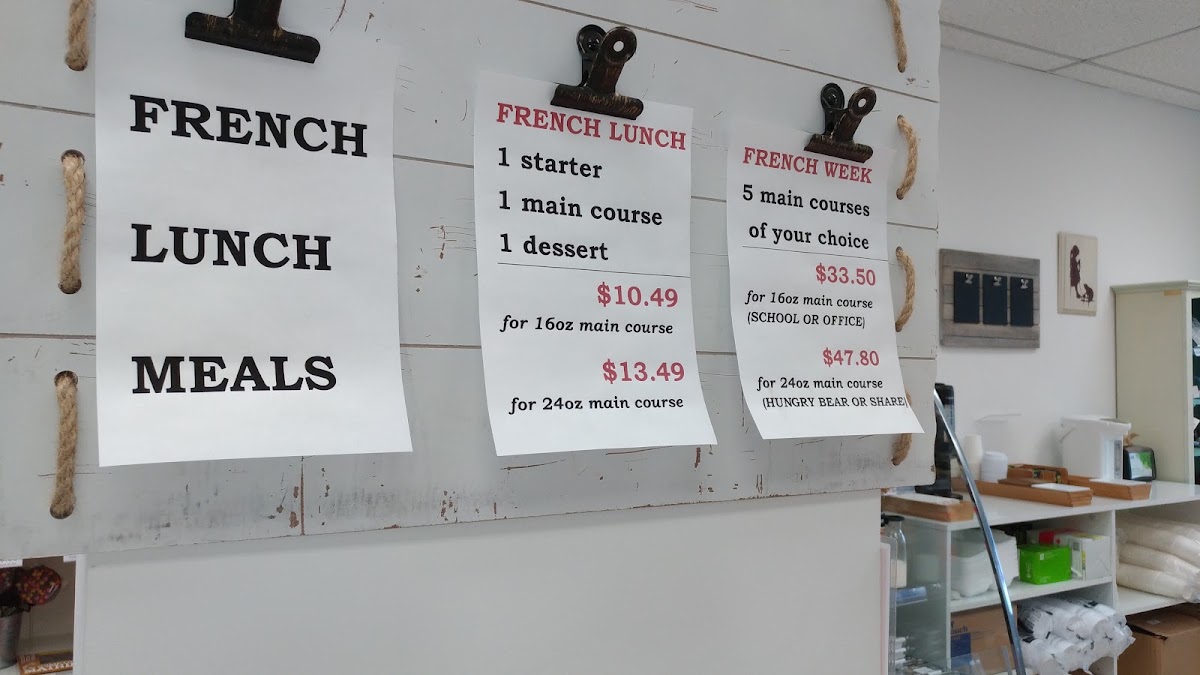 FRENCH
LUNCH
MEALS
FRENCH LUNCH
1 starter
1 main course
1 dessert
$10.49
for 16oz main course
$13.49
for 24oz main course
FRENCH WEEK
5 main courses
of your choice
$33.50
for 16oz main course
(SCHOOL OR OFFICE)
$47.80
for 24oz main course
(HUNGRY BEAR OR SHARE)